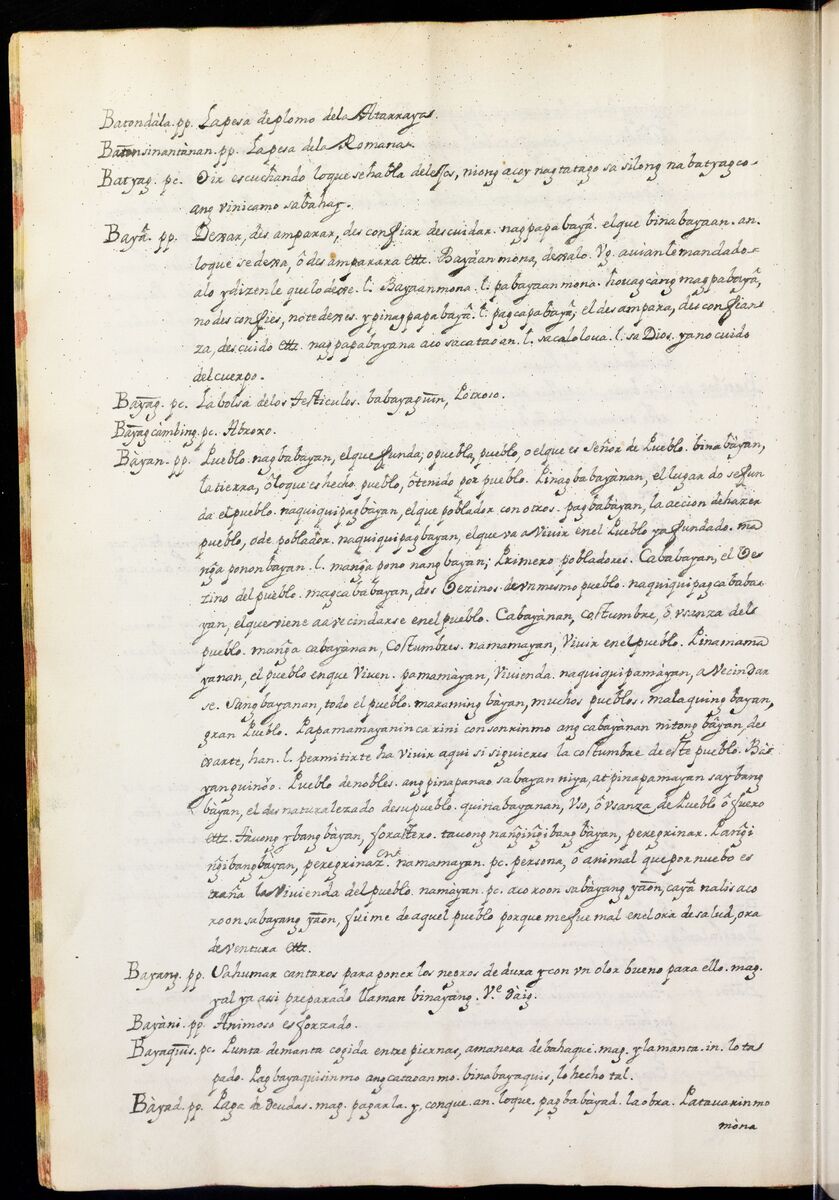 Batondàla. pp. La pesa de plomo dela Atarraya.
Batonsinantànan. pp. La pesa dela Romana.
Batyag. pc. Oir escuchando loque se habla delexos, niong acoy nagtatago sa silong na batyagco-
ang vinicamo sabahay.
Bayã. pp. Dexar, desamparar, desconfiar descuidar. nagpapabayã. elque binabayaan. an.
loque se dexa, ô desamparara ettz. Bayãan mòna, dexalo. Vg. aviante mandado-
alo y dizenle que lo dexe. l. Bayaan mona. l. pabayaan mona. houag càng magpabayã,
no desconfies, note dexes. y pinagpapabayã. l. pagcapabayã, el desampara, desconfian
za, descuido ettz. nagpapabayana aco sacataoan. l. sacaloloua. l. sa Dios. yano cuido
del cuerpo.
Bayag. pc. La bolsa delos testiculos. babayaguin, Potroso.
Bayag càmbing. pc. Abroxo.
Bàyan. pp. Pueblo. nagbabàyan, elque funda; o puebla, pueblo, o elque es Señor de Pueblo. bina bàyan,
la tierra, ô loque es hecho pueblo, ô tenido por pueblo. Pinagbabayànan, el lugar do se fun
da el pueblo. naquiquipagbàyan, elque poblador con otros. pagbabàyan, la accion de hazer
pueblo, ode poblador. naquiquipagbayan, elque va a Vivir enel Pueblo ya fundado. ma
nga ponon bàyan. l. manga pono nang bayan; Primero pobladores. Cababàyan, el Ve-
zino del pueblo. magcababàyan, dos Vezinos de vn mesmo pueblo. naquiquipagcababa-
yan, elque viene a avecindarse enel pueblo. Cabayànan, costumbre, ô vsanza dela
pueblo. manga cabayànan, Costumbres. namamayan, Vivir enel pueblo. Pinamama
yanan, el pueblo enque Viven. pamamàyan, Vivienda. naquiquipamàyan, aVecindar
se. Sangbayanan, todo el pueblo. maraming bàyan, muchos pueblos. malaquing bayan,
gran Pueblo. Papamamayaninca rini con sonrinmo ang cabayànan nitong bàyan, de
xarte, han. l. permitirte ha vivir aqui si siguieres la costumbre de este pueblo. Ba-
yan guinóo. Pueblo de nobles. ang pinapanao sa bayan niya, at pinapamayan say bang
bàyan, el desnaturalezado desu pueblo. quinabayanan, Vso, ô vsanza de Pueblo ô fuero
ettz. tàvong ybang bàyan, forastero. tauong nangingibang bàyan, peregrinar. Pangi
ngibang bàyan, peregrinazon. namamayan. pc. persona, ô animal que por nuebo es
traña la Vivienda del pueblo. namàyan. pc. aco roon sa bàyang yàon, cayà nalis aco
roon sabayang yàon, fuime de aquel pueblo porque me fue mal enel ora de salud, ora
de ventura ettz.
Bayang. pp. Sahumar cantaros para poner los negros de dura y con vn olor bueno para ello. mag.
yal ya assi preparado llaman binayàng. Ve. dàig.
Bayàni. pp. Animoso esforzado.
Bayaquis. pc. Punta de manta cogida entre piernas, a manera de bahaque. mag. y la manta. in. lo ta
pado. Pagbayaquisin mo ang cataoan mo. binabayaquis, lo hecho tal.
Bàyad. pp. Paga de deudas. mag. pagarla. y, conque. an. loque. pagbabàyad. la obra. Patauarinmo
mòna